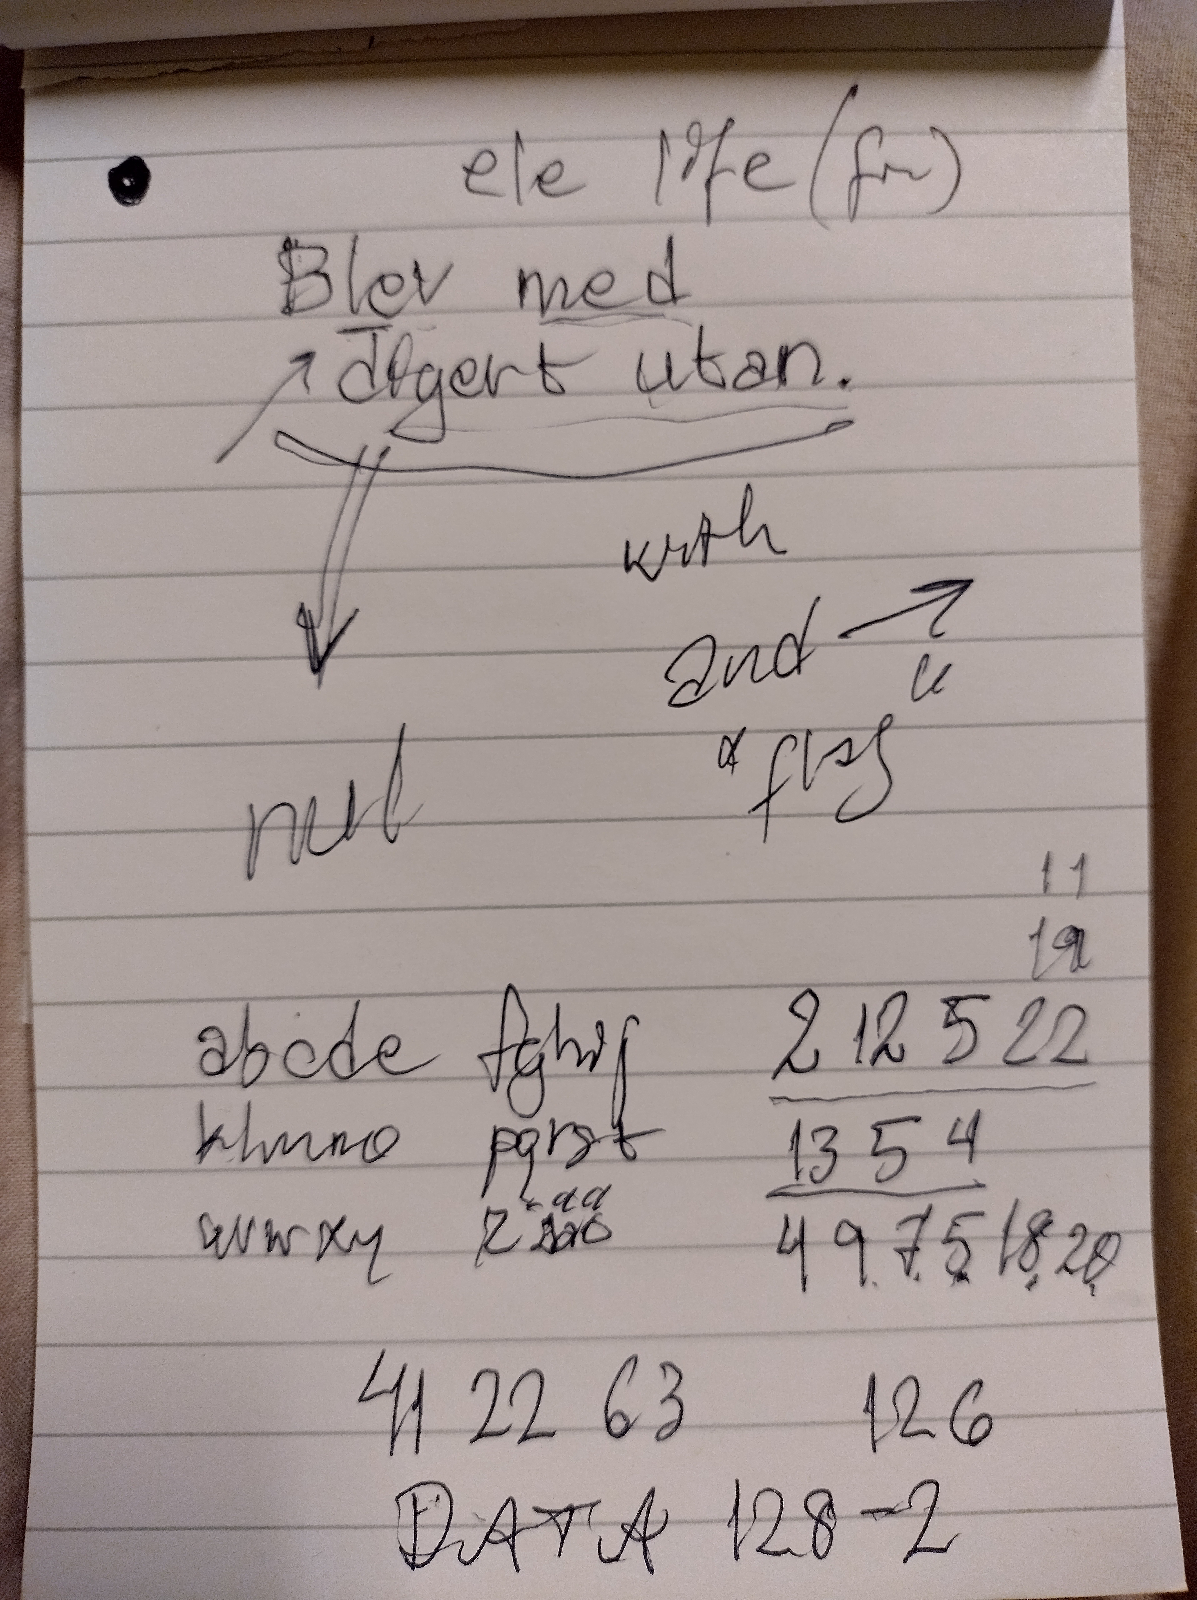 ele life (fn)
Blev med
digert utan.
with
and
flag
null
11
abcde fghij 2 12 5 22
klmno pqrst 13 5 4
uvwxy z åäö 4 9 7 5 18 20
41 22 63 126
DATA 128-2